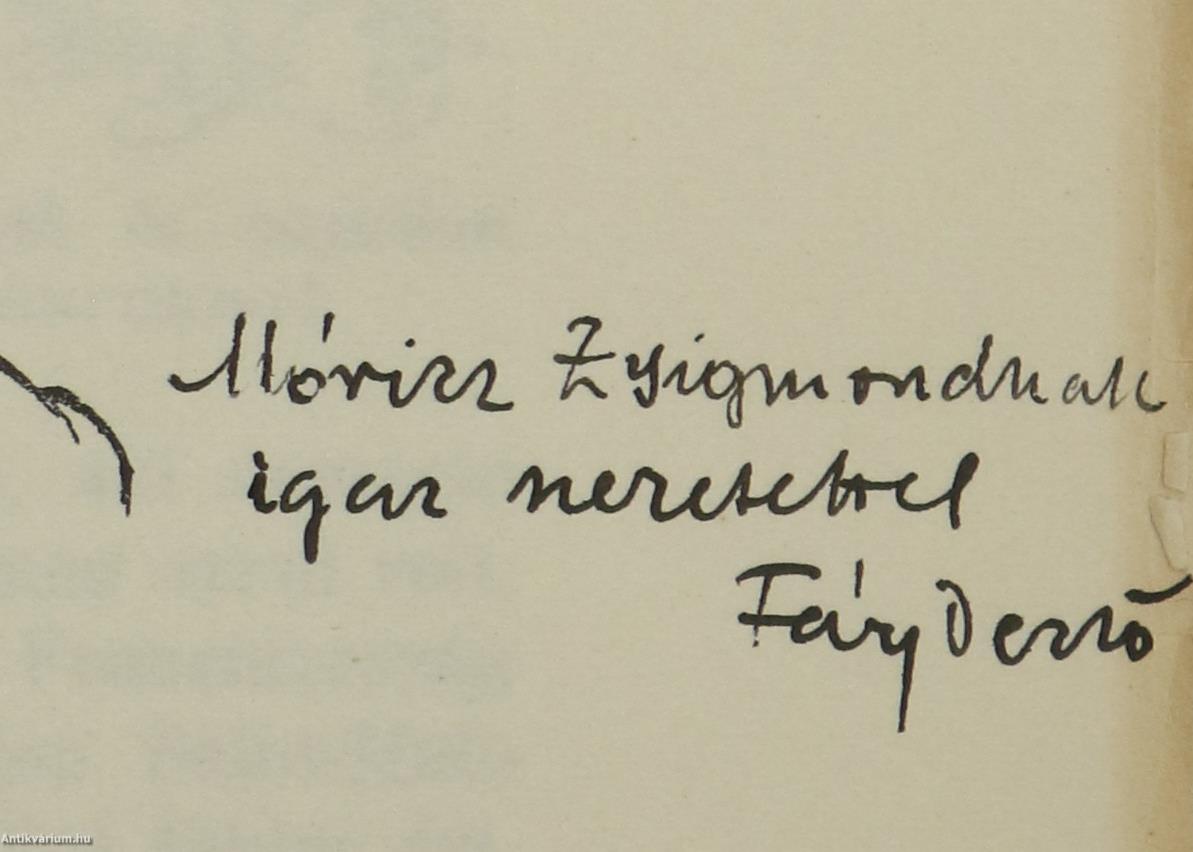 Móricz Zsigmondnak
igaz szeretettel
Fáy Dezső
Antikvárium.hu